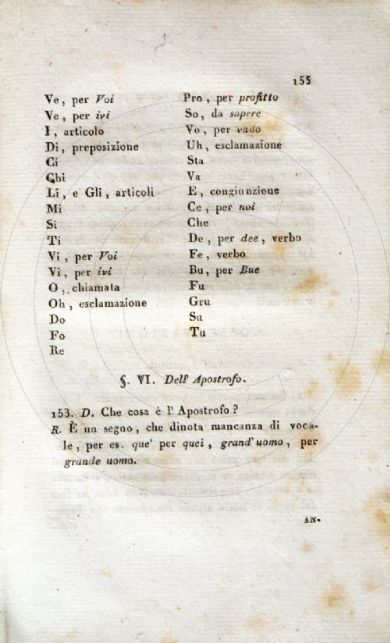 155
Ve, per Voi
Ve, per ivi
I, articolo
Di, preposizione
Ci
Chi
Li, e Gli, articoli
Mi
Si
Ti
Vi, per Voi
Vi, per ivi
O, chiamata
Oh, esclamazione
Do
Fo
Re
Pro, per profitto
So, da sapere
Vo, per vado
Uh, esclamazione
Sta
Va
E, congiunzione
Ce, per noi
Che
De, per dee, verbo
Fe, verbo
Bu, per Bue
Fu
Gru
Su
Tu
§. VI. Dell' Apostrofo.
153. D. Che cosa è l' Apostrofo?
R. È un segno, che dinota mancanza di voca-
le, per es. que' per quei, grand' uomo, per
grande uomo.
AN-